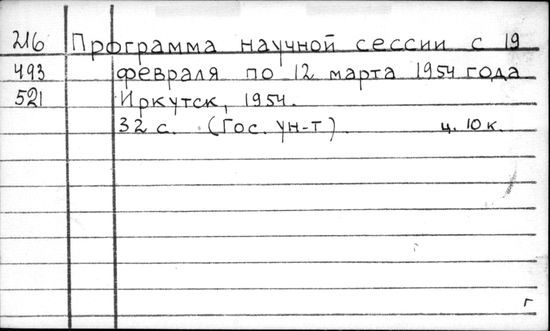 216 Программа научной сессии с 19
493 февраля по 12 марта 1954 года
521 Иркутск, 1954.
32 с. (Гос. ун-т). ц. 10 к.
г